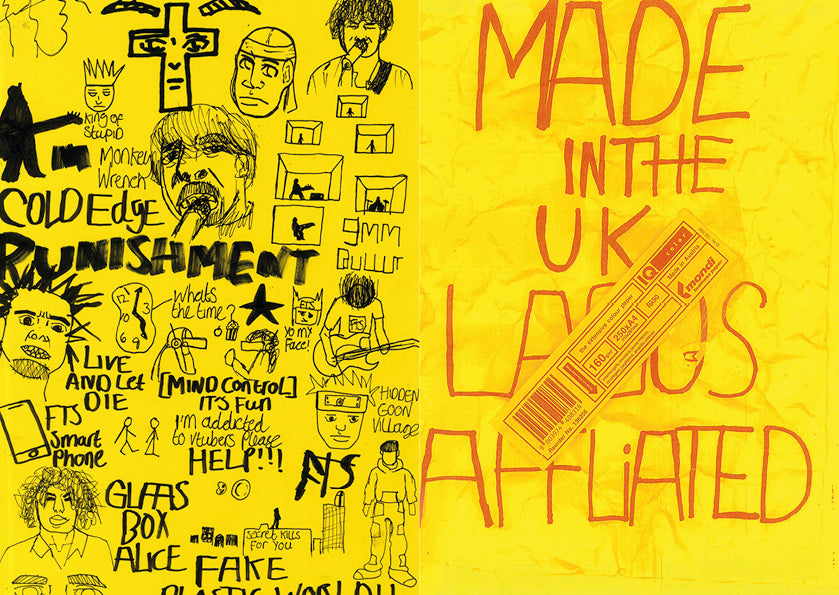 King of
Stupid
Monkey
Wrench
COLD Edge
RUNISHMENT
9MM
Bullut
12
3
Whats
the time?
yo my
Face!
LIVE
AND Let
DIE
[MIND CONTROL]
IT'S FUN
I'm addicted
to vtubers Please
HELP!!!
HIDDEN
GOON
VILLAGE
FTS
Smart
Phone
FTS
GLAAS
BOX
ALICE
Secret kills
FOR YOU
FAKE
PLASTIC WORLD
MADE
IN THE
UK
LAGOS
AFFLiATED
IQ color
mondi
Made in Austria
the extensive colour paper
160
250xA4
IG50
Reorder No.